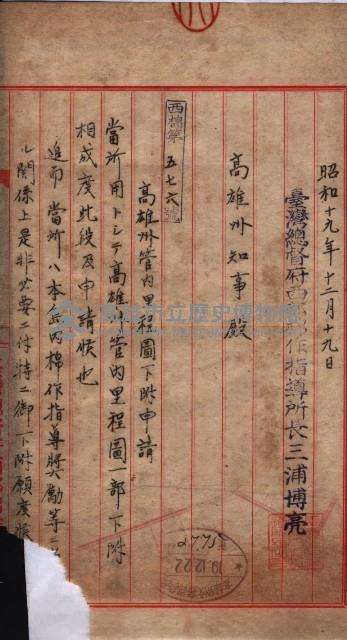 昭和十九年十二月十九日
臺灣總督府西部棉作指導所長三浦博亮
高雄州知事殿
西棉第五七六號
高雄州管內里程圖下附申請
當所用トシテ高雄州管內里程圖一部下附
相成度此段及申請候也
追而當所ハ本島內棉作指導奬勵等ニ
ル關係上是非必要ニ付特ニ御下附願度
2775
19.12.22
高雄市立歷史博物館